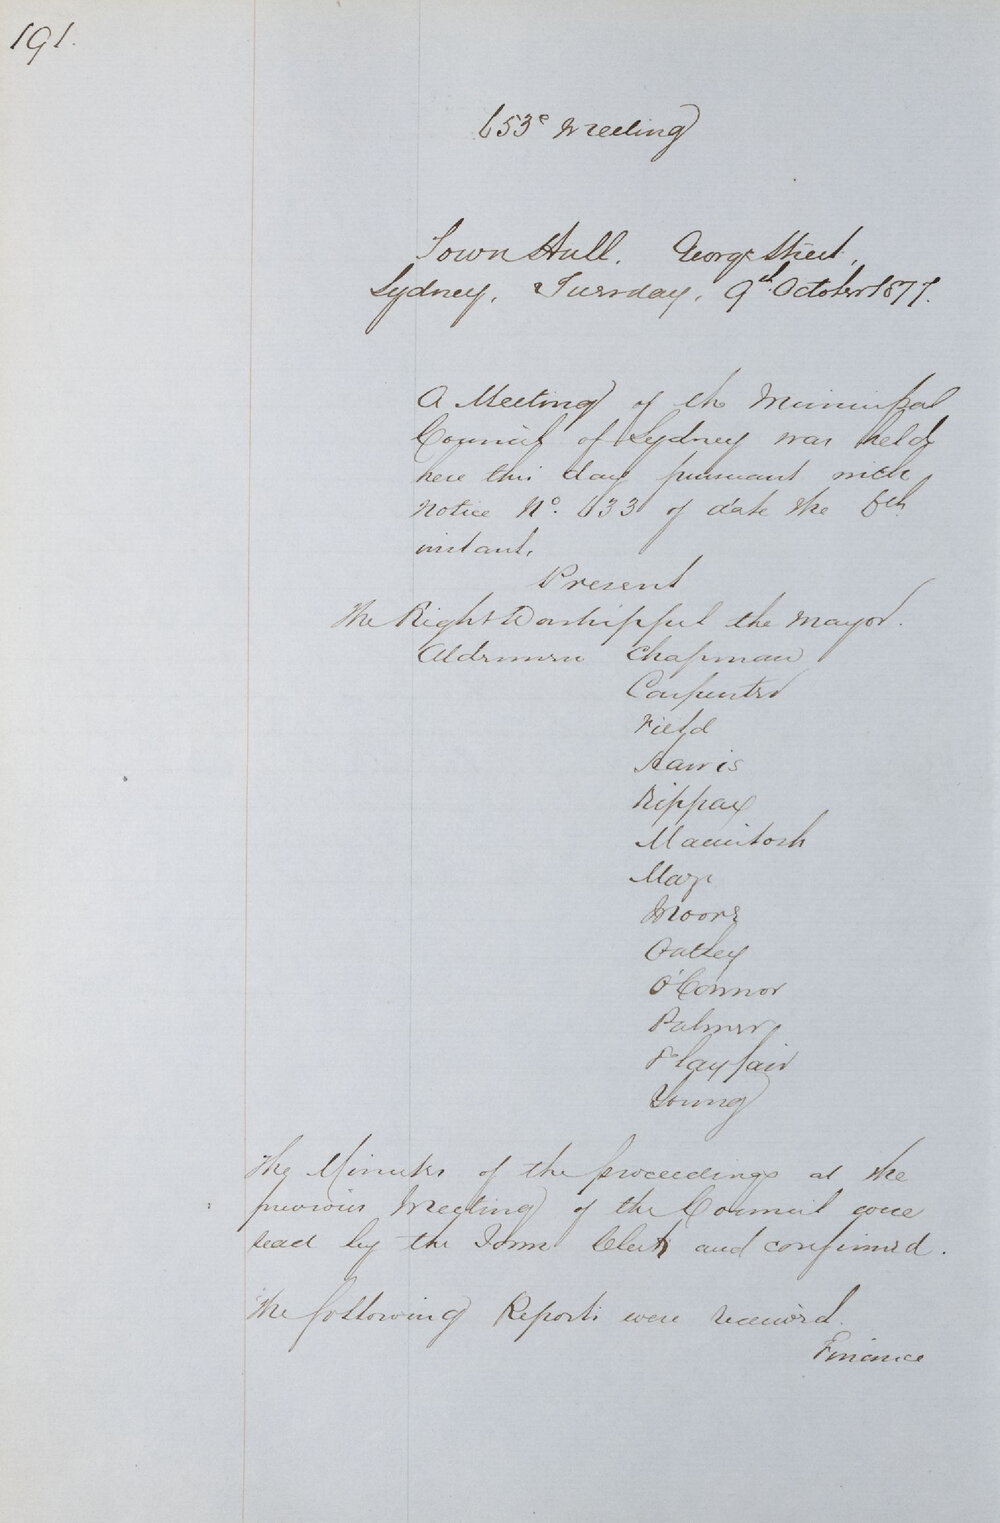 191.
653d Meeting
Town Hall. George Street,
Sydney, Tuesday, 9th October 1877.
A Meeting of the Municipal
Council of Sydney was held
here this day pursuant with
Notice No. 633 of date the 6th
instant.
Present
The Right Worshipful the Mayor.
Aldermen Chapman
Carpenter
Field
Harris
Hippax
Macintosh
Moore
Oatley
O'Connor
Palmer
Playfair
Young
The Minutes of the proceedings at the
previous Meeting of the Council were
read by the Town Clerk and confirmed.
The following Reports were received.
Finance